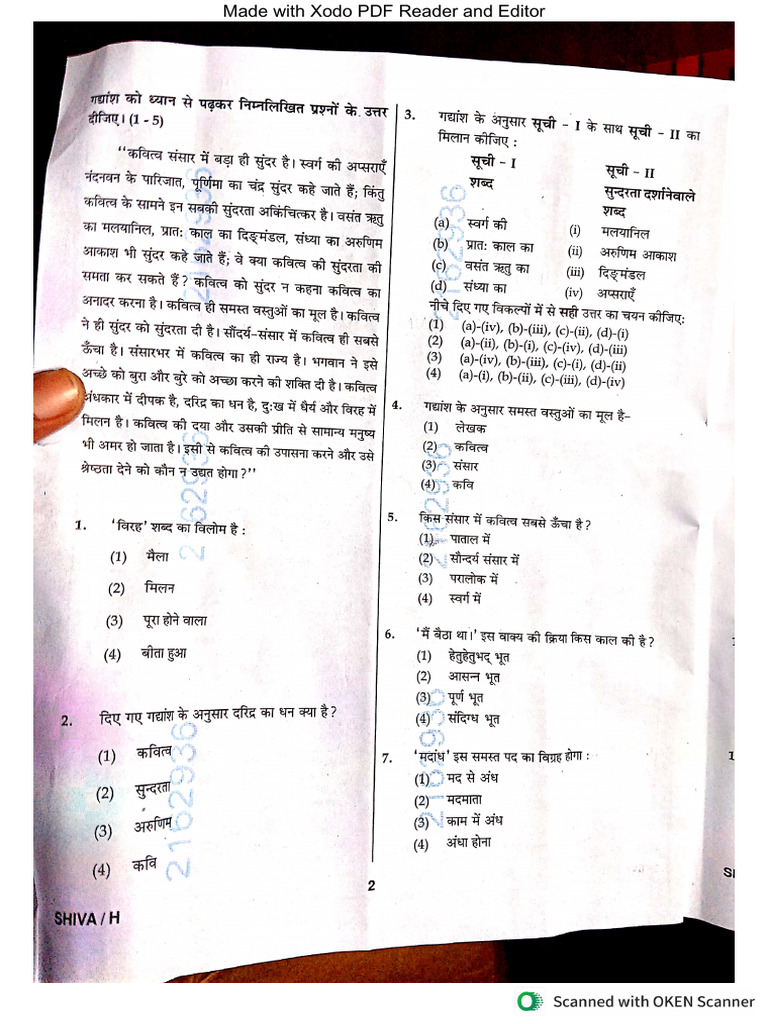 Made with Xodo PDF Reader and Editor
गद्यांश को ध्यान से पढ़कर निम्नलिखित प्रश्नों के उत्तर
दीजिए। (1 - 5)
‘‘कवित्व संसार में बड़ा ही सुंदर है। स्वर्ग की अप्सराएँ
नंदनवन के पारिजात, पूर्णिमा का चंद्र सुंदर कहे जाते हैं; किंतु
कवित्व के सामने इन सबकी सुंदरता अकिंचित्कर है। वसंत ऋतु
का मलयानिल, प्रातः काल का दिङ्मंडल, संध्या का अरुणिम
आकाश भी सुंदर कहे जाते हैं; वे क्या कवित्व की सुंदरता की
समता कर सकते हैं? कवित्व को सुंदर न कहना कवित्व का
अनादर करना है। कवित्व ही समस्त वस्तुओं का मूल है। कवित्व
ने ही सुंदर को सुंदरता दी है। सौंदर्य-संसार में कवित्व ही सबसे
ऊँचा है। संसारभर में कवित्व का ही राज्य है। भगवान ने इसे
अच्छे को बुरा और बुरे को अच्छा करने की शक्ति दी है। कवित्व
अंधकार में दीपक है, दरिद्र का धन है, दुःख में धैर्य और विरह में
मिलन है। कवित्व की दया और उसकी प्रीति से सामान्य मनुष्य
भी अमर हो जाता है। इसी से कवित्व की उपासना करने और उसे
श्रेष्ठता देने को कौन न उद्यत होगा?’’
1. ‘विरह’ शब्द का विलोम है :
(1) मैला
(2) मिलन
(3) पूरा होने वाला
(4) बीता हुआ
2. दिए गए गद्यांश के अनुसार दरिद्र का धन क्या है?
(1) कवित्व
(2) सुन्दरता
(3) अरुणिम
(4) कवि
SHIVA / H
3. गद्यांश के अनुसार सूची - I के साथ सूची - II का
मिलान कीजिए :
सूची - I सूची - II
शब्द सुन्दरता दर्शानेवाले
शब्द
(a) स्वर्ग की (i) मलयानिल
(b) प्रातः काल का (ii) अरुणिम आकाश
(c) वसंत ऋतु का (iii) दिङ्मंडल
(d) संध्या का (iv) अप्सराएँ
नीचे दिए गए विकल्पों में से सही उत्तर का चयन कीजिए:
(1) (a)-(iv), (b)-(iii), (c)-(ii), (d)-(i)
(2) (a)-(ii), (b)-(i), (c)-(iv), (d)-(iii)
(3) (a)-(iv), (b)-(iii), (c)-(i), (d)-(ii)
(4) (a)-(i), (b)-(ii), (c)-(iii), (d)-(iv)
4. गद्यांश के अनुसार समस्त वस्तुओं का मूल है–
(1) लेखक
(2) कवित्व
(3) संसार
(4) कवि
5. किस संसार में कवित्व सबसे ऊँचा है?
(1) पाताल में
(2) सौन्दर्य संसार में
(3) परालोक में
(4) स्वर्ग में
6. ‘मैं बैठा था।’ इस वाक्य की क्रिया किस काल की है?
(1) हेतुहेतुभद् भूत
(2) आसन्न भूत
(3) पूर्ण भूत
(4) संदिग्ध भूत
7. ‘मदांध’ इस समस्त पद का विग्रह होगा :
(1) मद से अंध
(2) मदमाता
(3) काम में अंध
(4) अंधा होना
2
2162936
2162936
2162936
2162936
Scanned with OKEN Scanner